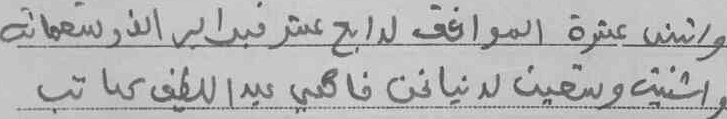 واثنى عشرة الموافق لرابع عشر فبراير الف وتسعمائة
واثنين وتسعين لدينا نحن فاهمي عبد اللطيف كاتب